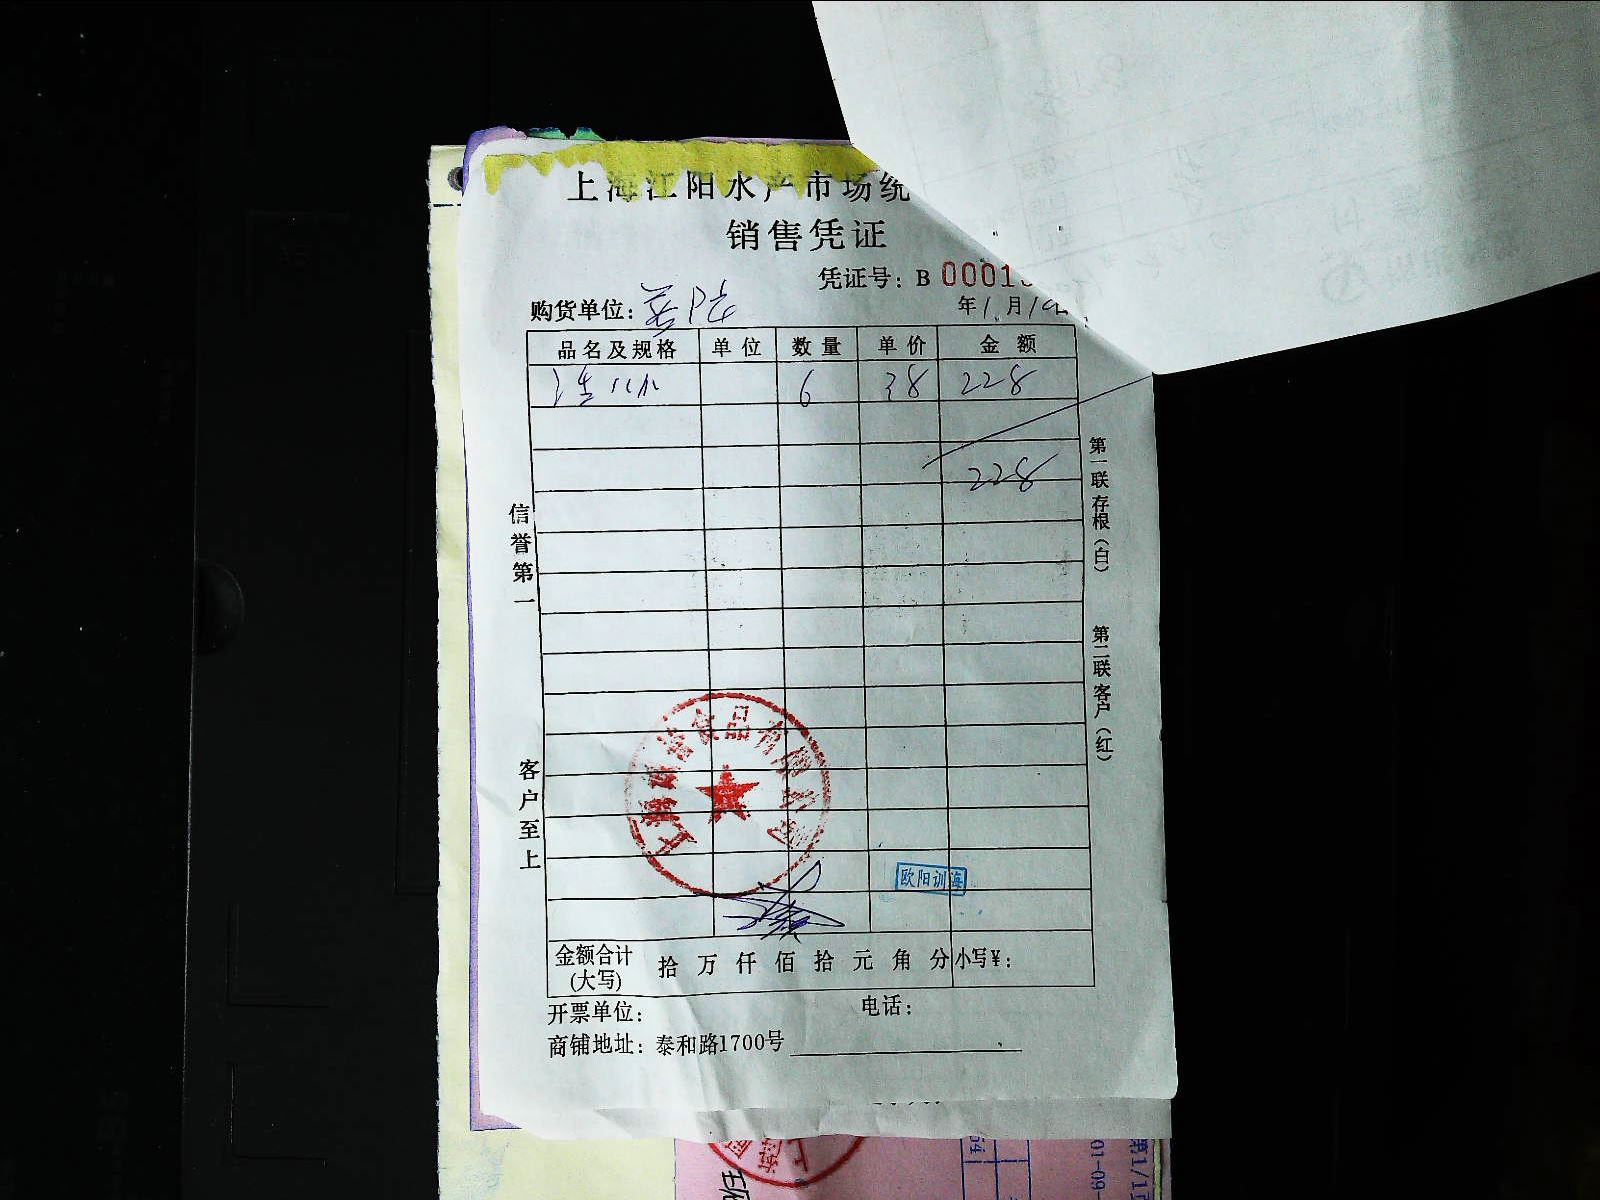 上海江阳水产市场统
销售凭证
凭证号：B 00015
购货单位：
年1月10日
品名及规格 单位 数量 单价 金额
6 38 228
228
信誉第一
客户至上
第一联存根（白）
第二联客户（红）
食品有限公司
欧阳训海
金额合计(大写) 拾 万 仟 佰 拾 元 角 分 小写¥：
开票单位： 电话：
商铺地址：泰和路1700号
01-09-
第1/1页